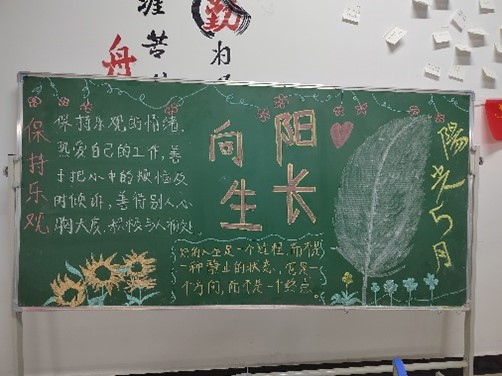 涯苦
舟
勤为
保持乐观
保持乐观的情绪,
热爱自己的工作,善
于把心中的烦恼及
时倾诉,善待别人,心
胸大度,积极与人相处
向阳
生长
好的人生是一个过程,而不是
一种静止的状态,它是一
个方向,而不是一个终点。
陽光5月